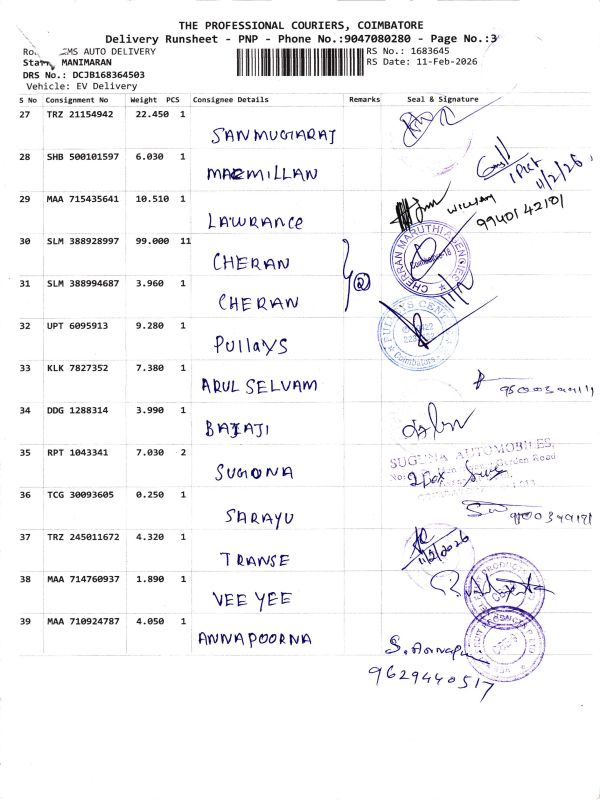 THE PROFESSIONAL COURIERS, COIMBATORE
Delivery Runsheet - PNP - Phone No.:9047080280 - Page No.:3
EMS AUTO DELIVERY
RS No.: 1683645
MANIMARAN
RS Date: 11-Feb-2026
DRS No.: DCJB168364503
Vehicle: EV Delivery
S No Consignment No Weight PCS Consignee Details Remarks Seal & Signature
27 TRZ 21154942 22.450 1
SANMUGARAJ
28 SHB 500101597 6.030 1
MACMILLAN
1 PKT
11/2/26
29 MAA 715435641 10.510 1
LAWRANCE
William
9940142101
30 SLM 388928997 99.000 11
CHERAN
CHERRAN MARUTHI AGENCIES
Coimbatore-18
31 SLM 388994687 3.960 1
CHERAN
2
32 UPT 6095913 9.280 1
PUllAYS
PULLAYS CENT
Coimbatore
33 KLK 7827352 7.380 1
ARUL SELVAM
34 DDG 1288314 3.990 1
BALAJI
35 RPT 1043341 7.030 2
SUGUNA
SUGUNA AUTOMOBILES,
No: Garden Road
2 Box
36 TCG 30093605 0.250 1
SARAYU
37 TRZ 245011672 4.320 1
TRANSE
11/2/2026
38 MAA 714760937 1.890 1
VEE YEE
39 MAA 710924787 4.050 1
ANNAPOORNA
S. Annapu
9629440517